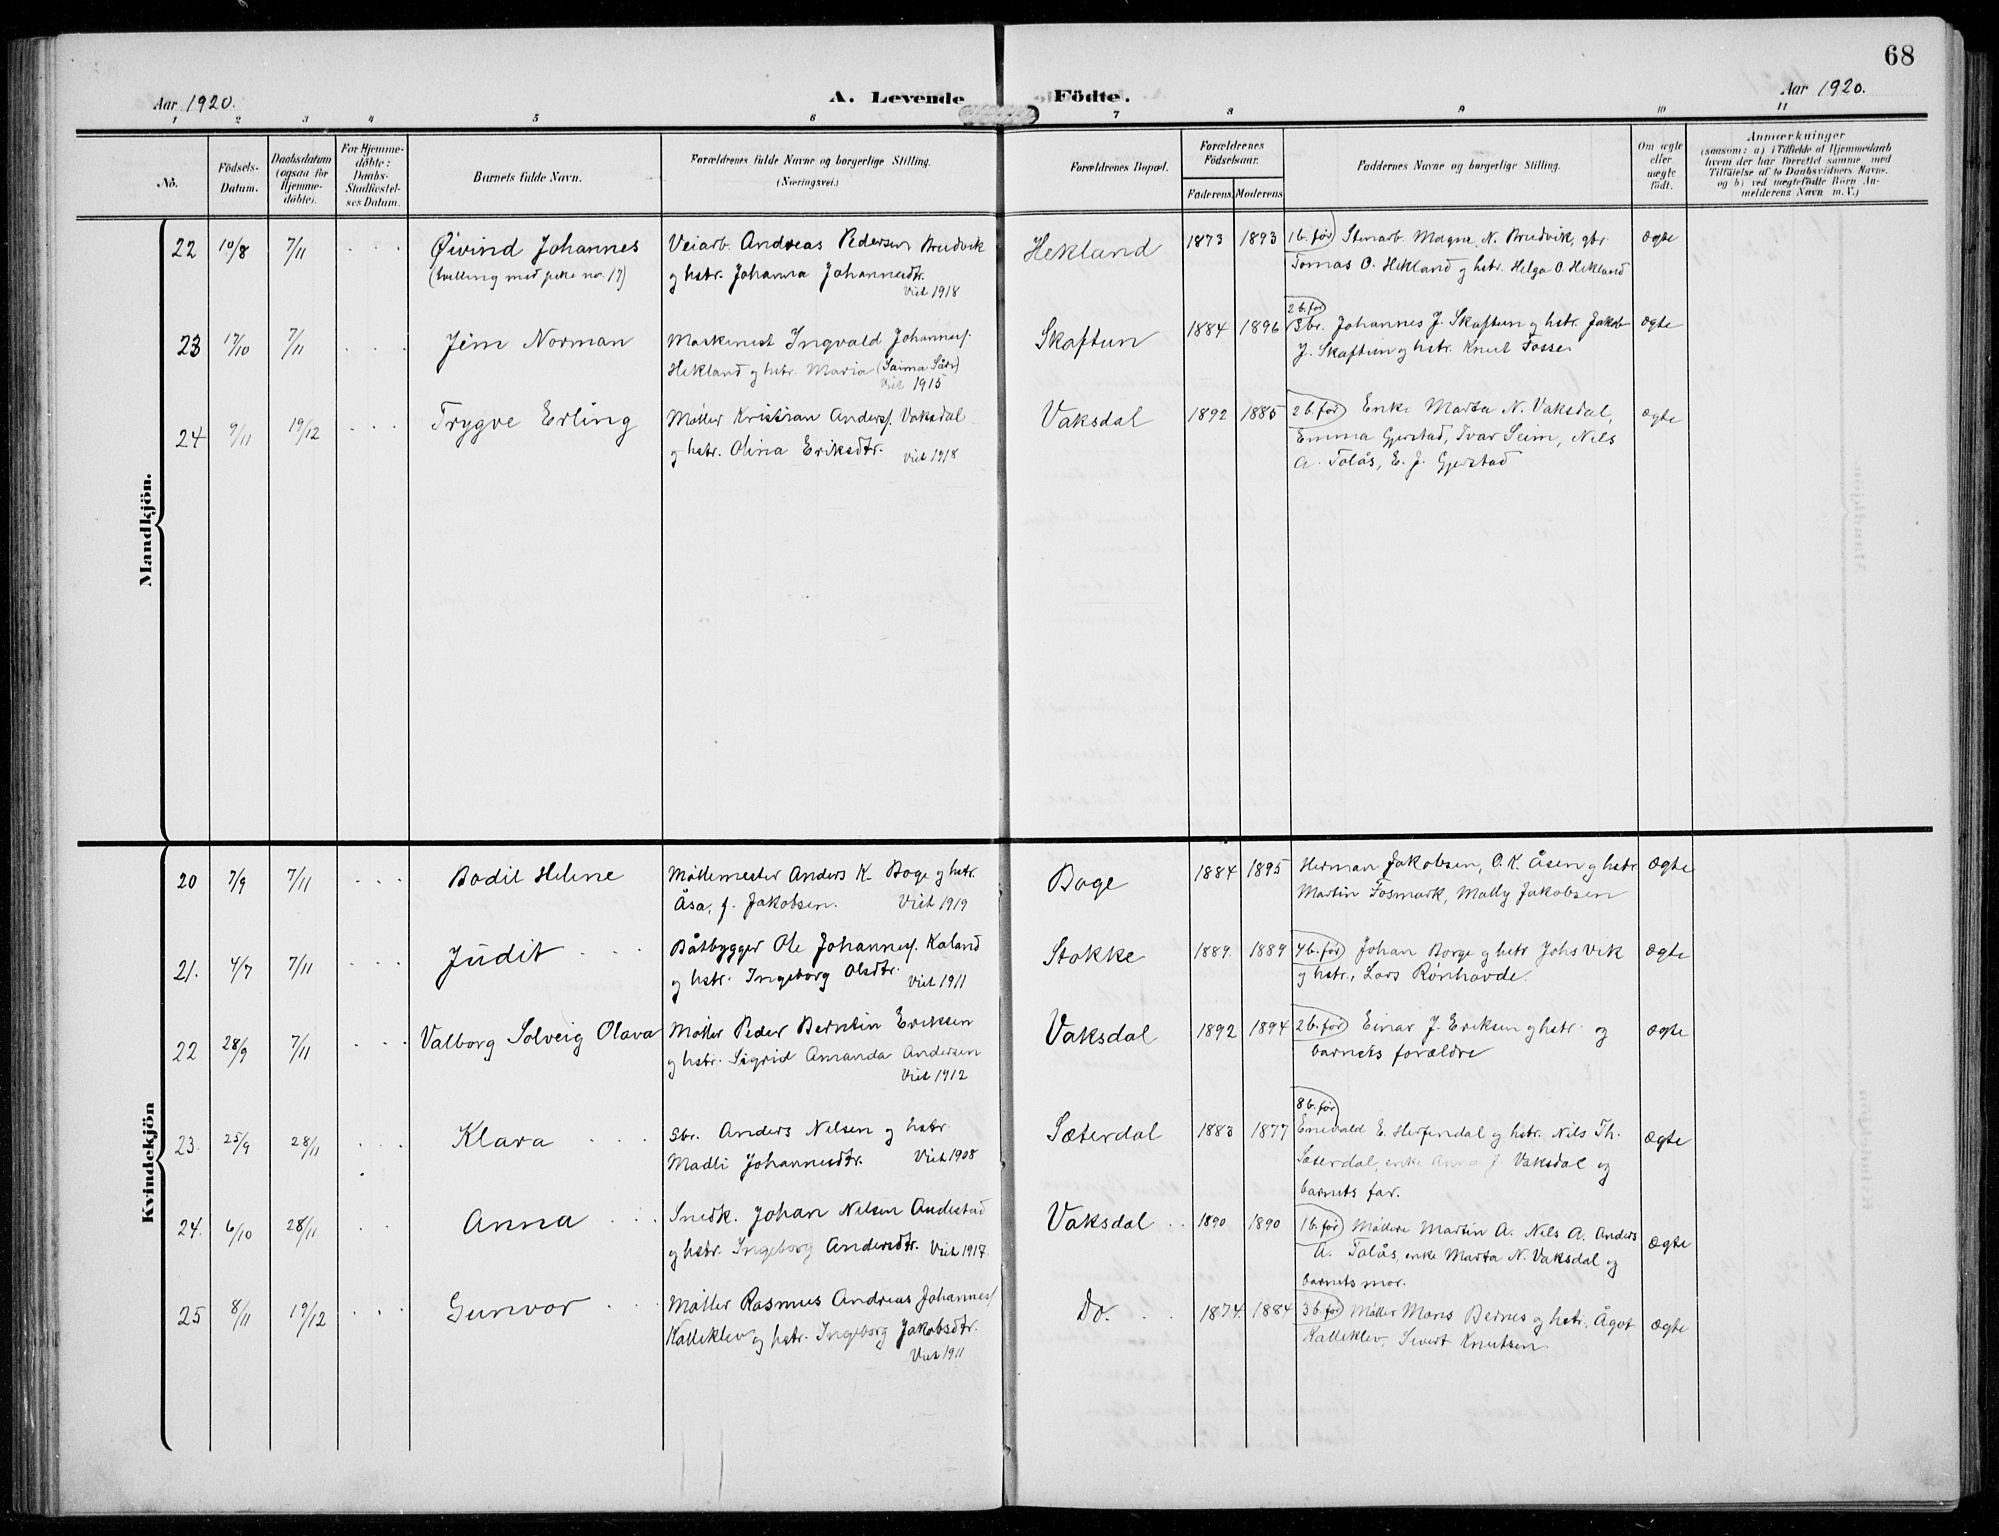 68
Aar 1920.
A. Levende
Födte.
Aar 1920.
1 2 3 4 5 6 7 8 9 10 11
No.
Födsels-
Datum.
Daabsdatum
(ogsaa for
Hjemme-
döbte).
For Hjemme-
döbte:
Daabs-
Stadfæstel-
ses Datum.
Barnets fulde Navn.
Forældrenes fulde Navne og borgerlige Stilling.
(Næringsvei.)
Forældrenes Bopæl.
Forældrenes
Födselsaar.
Faderens
Moderens
Faddernes Navne og borgerlige Stilling.
Om ægte
eller
uægte
födt.
Anmærkninger
(saasom: a) i Tilfælde af Hjemmedaab
hvem der har forrettet samme, med
Tilføielse af to Daabsvidners Navne,
og b) ved uægtefödte Börn An-
melderens Navn m. V.)
Mandkjön.
22 10/8 7/11 Øivind Johannes
(tvilling med pike no. 17)
Veiarb. Andreas Pedersen Brudvik
og hstr. Johanna Johannesdtr.
Viet 1918
Hekland 1873 1893
1 b. før Stenarb. Magne N. Brudvik, gbr.
Tomas O. Hekland og hstr. Helga O. Hekland
ægte
23 17/10 7/11 Jim Norman
Maskinist Ingvald Johannes.
Hekland og hstr. Maria
Viet 1915
Skaftun 1884 1896
2 b. før
Gbr. Johannes J. Skaftun og hstr. Jakob
J. Skaftun og hstr. Knut Fosse.
ægte
24 9/11 19/12 Trygve Erling
Møller Kristian Anders. Vaksdal
og hstr. Olina Eriksdtr. Viet 1918
Vaksdal 1892 1885
2 b. før Enke Marta N. Vaksdal,
Emma Gjerstad, Ivar Seim, Nils
A. Tolås, E. J. Gjerstad
ægte
Kvindekjön
20 7/9 7/11 Bodil Helene
Møllemester Anders K. Boge og hstr.
Åsa, f. Jakobsen. Viet 1919
Boge 1884 1895
Herman Jakobsen, O. K. Åsen og hstr
Martin Fosmark, Molly Jakobsen
Ægte
21. 4/7 7/11 Judit
Båtbygger Ole Johannes. Kaland
og hstr. Ingeborg Olsdtr. Viet 1911
Stokke 1889. 1889
4 b. før Johan Borge og hstr Johs Vik
og hstr., Lars Rønhovde.
ægte
22 28/9 7/11 Valborg Solveig Olava
Møller Peder Berntin Eriksen
og hstr. Sigrid Amanda Andersen
Viet 1912
Vaksdal 1892 1894
2 b. før Einar J. Eriksen og hstr. og
barnets forældre
ægte
23. 25/9 28/11 Klara
Gbr. Anders Nilsen og hstr.
Madli Johannesdtr. Viet 1908
Sæterdal 1883 1877
8 b. før
Enevald E. Herfindal og hstr. Nils Th.
Sæterdal, enke Anna J. Vaksdal og
barnets far.
ægte
24. 6/10 28/11 Anna
Snedk. Johan Nilsen Audestad
og hstr. Ingeborg Andersdtr. Viet 1917.
Vaksdal 1890 1890
1 b. før Møllere Martin A. Nils A. Anders
A. Tolås, enke Marta N. Vaksdal og
barnets mor.
Ægte
25 8/11 19/12 Gunvor
Møller Rasmus Andreas Johannes.
Kalleklev og hstr. Ingeborg Jakobsdtr.
Viet 1911
Do. 1874. 1884
3 b. før Møller Mons Bernes og hstr. Ågot
Kalleklev, Sivert Knutsen.
ægte